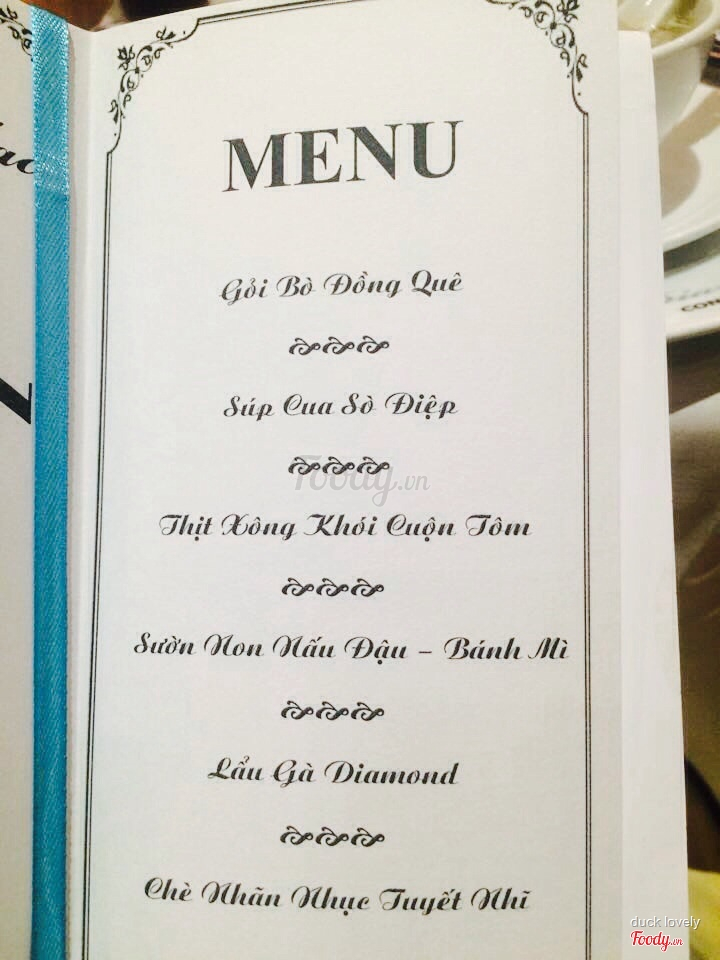 MENU
Gỏi Bò Đồng Quê
Súp Cua Sò Điệp
Foody.vn
Thịt Xông Khói Cuộn Tôm
Sườn Non Nấu Đậu – Bánh Mì
Lẩu Gà Diamond
Chè Nhãn Nhục Tuyết Nhĩ
duck lovely
Foody.vn